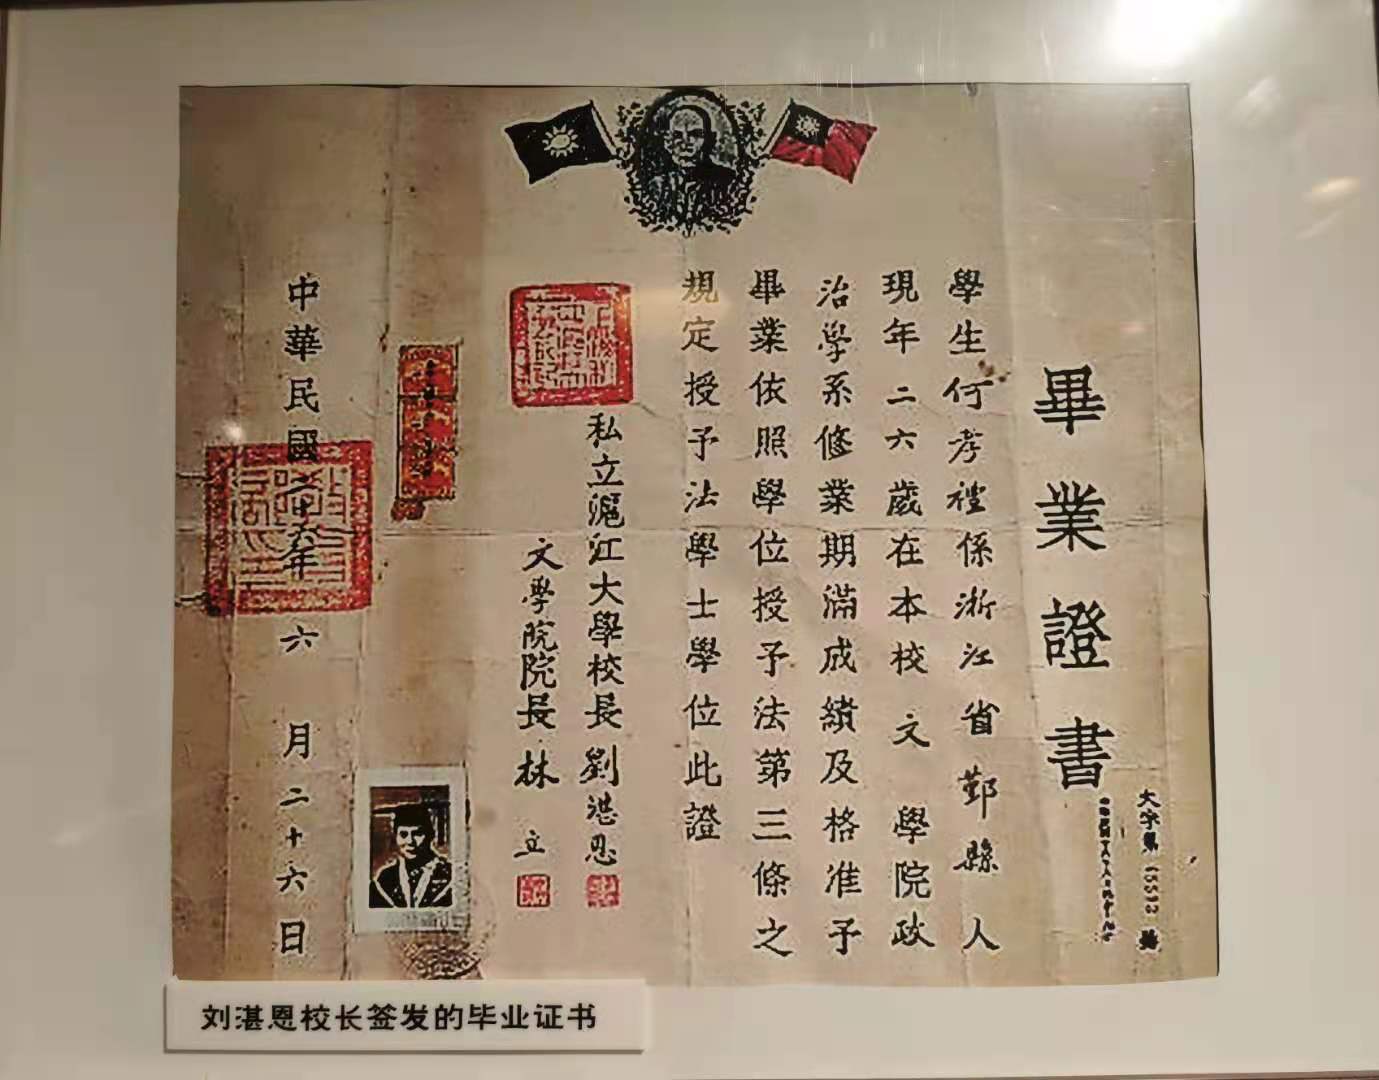 畢業證書
大字第 15313 號
學生何孝禮係浙江省鄞縣人
現年二六歲在本校文學院政
治學系修業期滿成績及格准予
畢業依照學位授予法第三條之
規定授予法學士學位此證
私立滬江大學校長劉湛恩
文學院院長林立
中華民國二十六年六月二十六日
刘湛恩校长签发的毕业证书